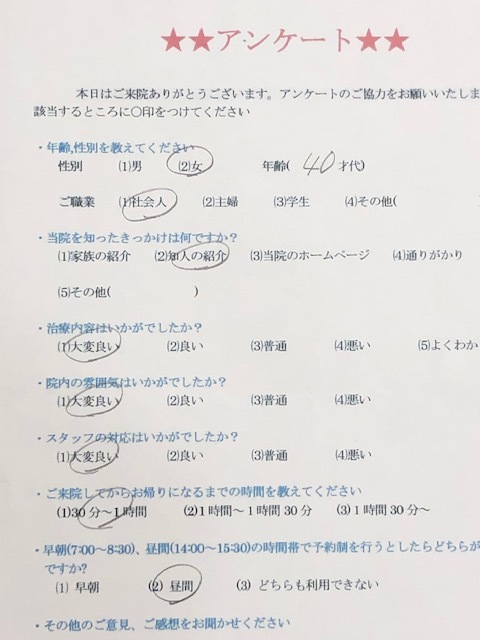 ★★アンケート★★
本日はご来院ありがとうございます。アンケートのご協力をお願いいたしま
該当するところに〇印をつけてください
・年齢,性別を教えてください
性別 (1)男 (2)女 年齢( 40 才代)
ご職業 (1)社会人 (2)主婦 (3)学生 (4)その他(
・当院を知ったきっかけは何ですか?
(1)家族の紹介 (2)知人の紹介 (3)当院のホームページ (4)通りがかり
(5)その他( )
・治療内容はいかがでしたか?
(1)大変良い (2)良い (3)普通 (4)悪い (5)よくわか
・院内の雰囲気はいかがでしたか?
(1)大変良い (2)良い (3)普通 (4)悪い
・スタッフの対応はいかがでしたか?
(1)大変良い (2)良い (3)普通 (4)悪い
・ご来院してからお帰りになるまでの時間を教えてください
(1)30分～1時間 (2)1時間～1時間30分 (3)1時間30分～
・早朝(7:00～8:30)、昼間(14:00～15:30)の時間帯で予約制を行うとしたらどちらが
ですか?
(1) 早朝 (2) 昼間 (3) どちらも利用できない
・その他のご意見、ご感想をお聞かせください